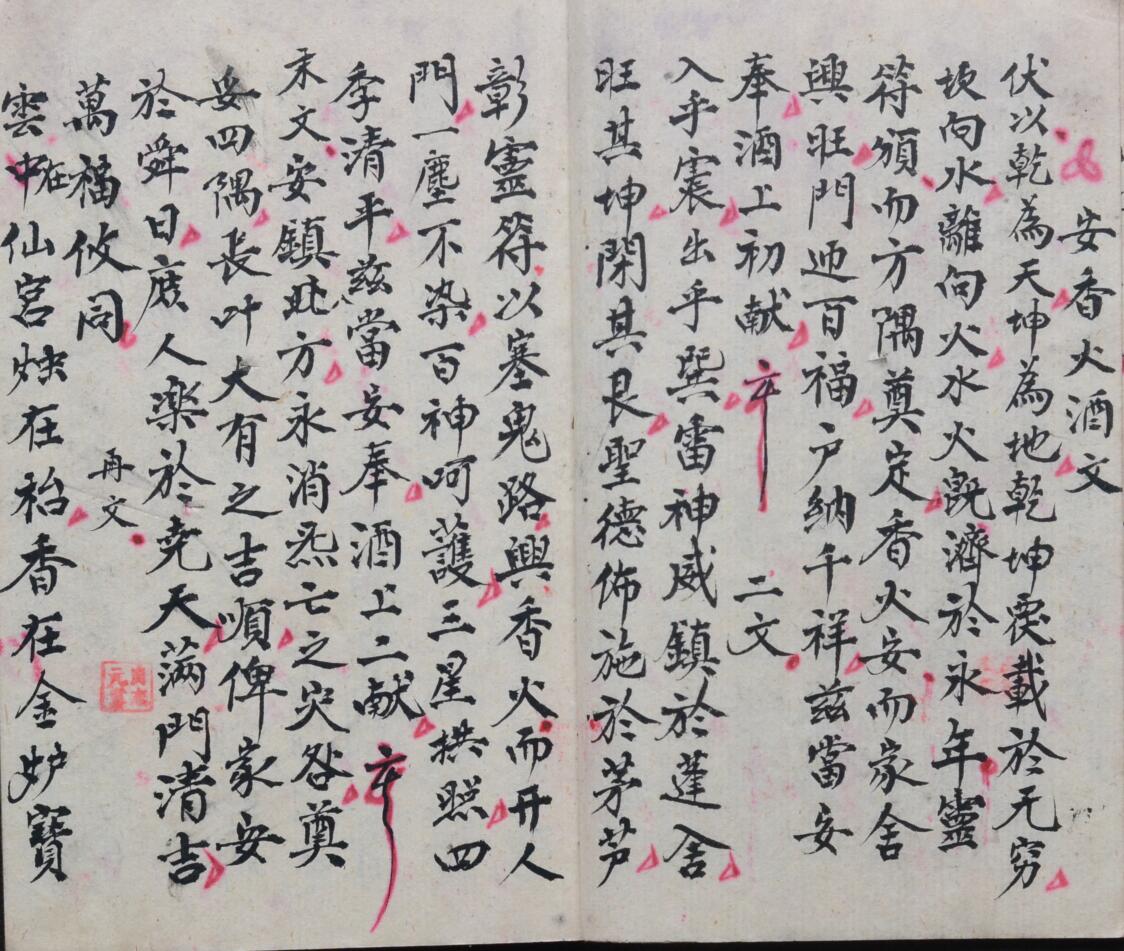 安香火酒文
伏以乾為天坤為地乾坤覆載於无穷
坎向水離向火水火既濟於永年靈
符頒而方隅奠定香火安而家舍
興旺門迎百福户納千祥兹當安
奉酒上初献 二文
入乎震出乎巽雷神威鎮於蓬舍
旺其坤閉其艮聖德佈施於茅芦
彰靈符以塞鬼路興香火而开人
門一塵不染百神呵護三星拱照四
季清平兹當安奉酒上二献
末文安鎮此方永消炁亡之灾咎奠
妥四隅長叶大有之吉順俾家安
於舜日庶人楽於尭天满門清吉
萬福攸同 再文
雲中在仙宫烛在袷香在金炉寳